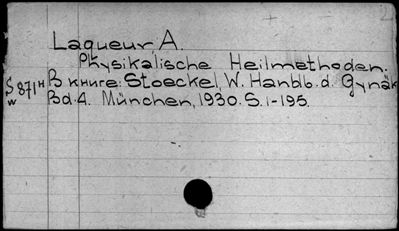 Laqueur, A.
Physikalische Heilmethoden.
S 871н В книге: Stoeckel, W. Handb. d. Gynäk
w Bd. 4. München, 1930. S. 1-195.